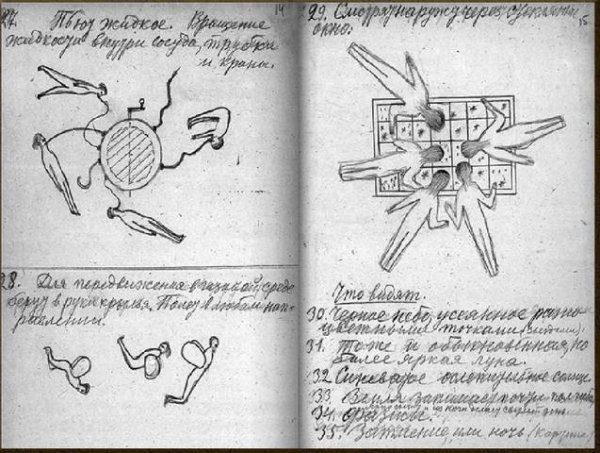 27. Пьют жидкое. Вращение 14
жидкости внутри сосуда, трубки
и краны.
28. Для передвижения в газовой среде
берут в руки крылья. Полет в любом нап-
равлении.
29. Смотрят наружу через стеклянные 15
окно.
Что видят.
30. Черное небо, усеянное разно-
цветными точками
31. Тоже и обыкновенная, но
более яркая луна.
32 Синеватое ослепительное солнце
33. Земля занимает почти пол неба
34. Фазисы.
35. Затмение, или ночь